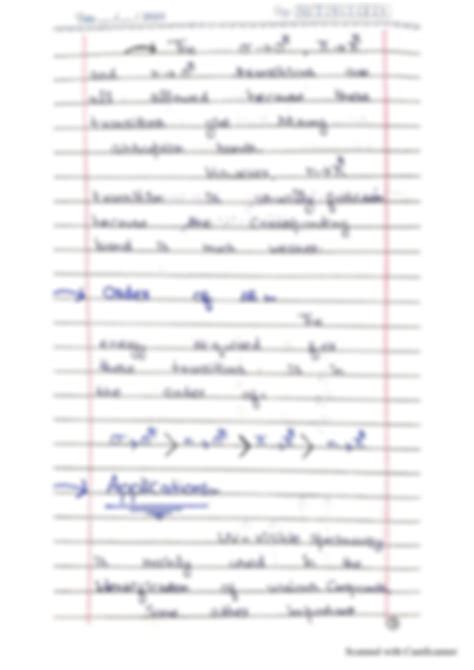 The σ→σ*, π→π*
and n→σ* transitions are
all allowed because these
transition give strong
absorption bands.
However, n→π*
transition is usually
because the corresponding
band is much weaker.
Order of
The
energy required for
these transitions is in
the order of:
σ→σ* > n→σ* > π→π* > n→π*
Applications
UV-visible spectroscopy
is mainly used in the
identification of various compounds
Some other important
Scanned with CamScanner